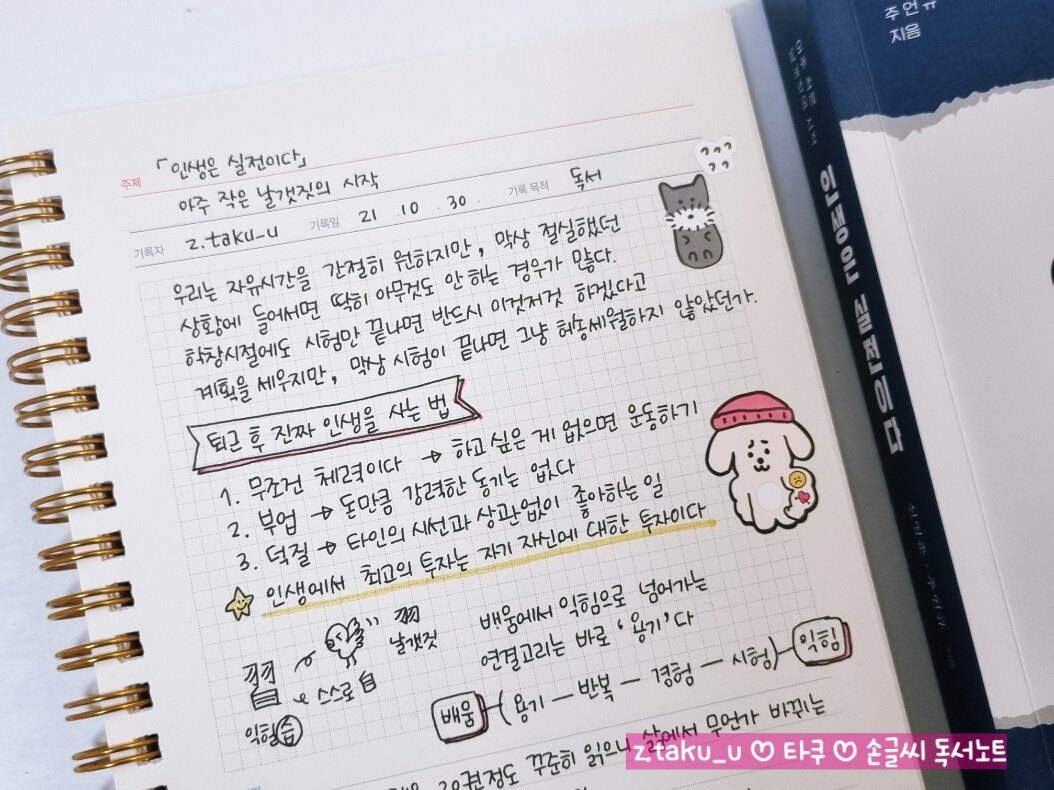 주제 「인생은 실전이다」
아주 작은 날갯짓의 시작
기록자 z.taku_u 기록일 21 . 10 . 30 . 기록 목적 독서
우리는 자유시간을 간절히 원하지만, 막상 절실했던
상황에 들어서면 딱히 아무것도 안 하는 경우가 많다.
학창시절에도 시험만 끝나면 반드시 이것저것 하겠다고
계획을 세우지만, 막상 시험이 끝나면 그냥 허송세월하지 않았던가.
퇴근 후 진짜 인생을 사는 법
1. 무조건 체력이다 → 하고 싶은 게 없으면 운동하기
2. 부업 → 돈만큼 강력한 동기는 없다
3. 덕질 → 타인의 시선과 상관없이 좋아하는 일
인생에서 최고의 투자는 자기 자신에 대한 투자이다
羽 날갯짓
스스로 自
익힐 習
배움에서 익힘으로 넘어가는
연결고리는 바로 '용기'다
배움 (용기 — 반복 — 경험 — 시험) 익힘
20권정도 꾸준히 읽으니 삶에서 무언가 바뀌는
주언규
지음
인생은 실전이다
z.taku_u ♡ 타쿠 ♡ 손글씨 독서노트